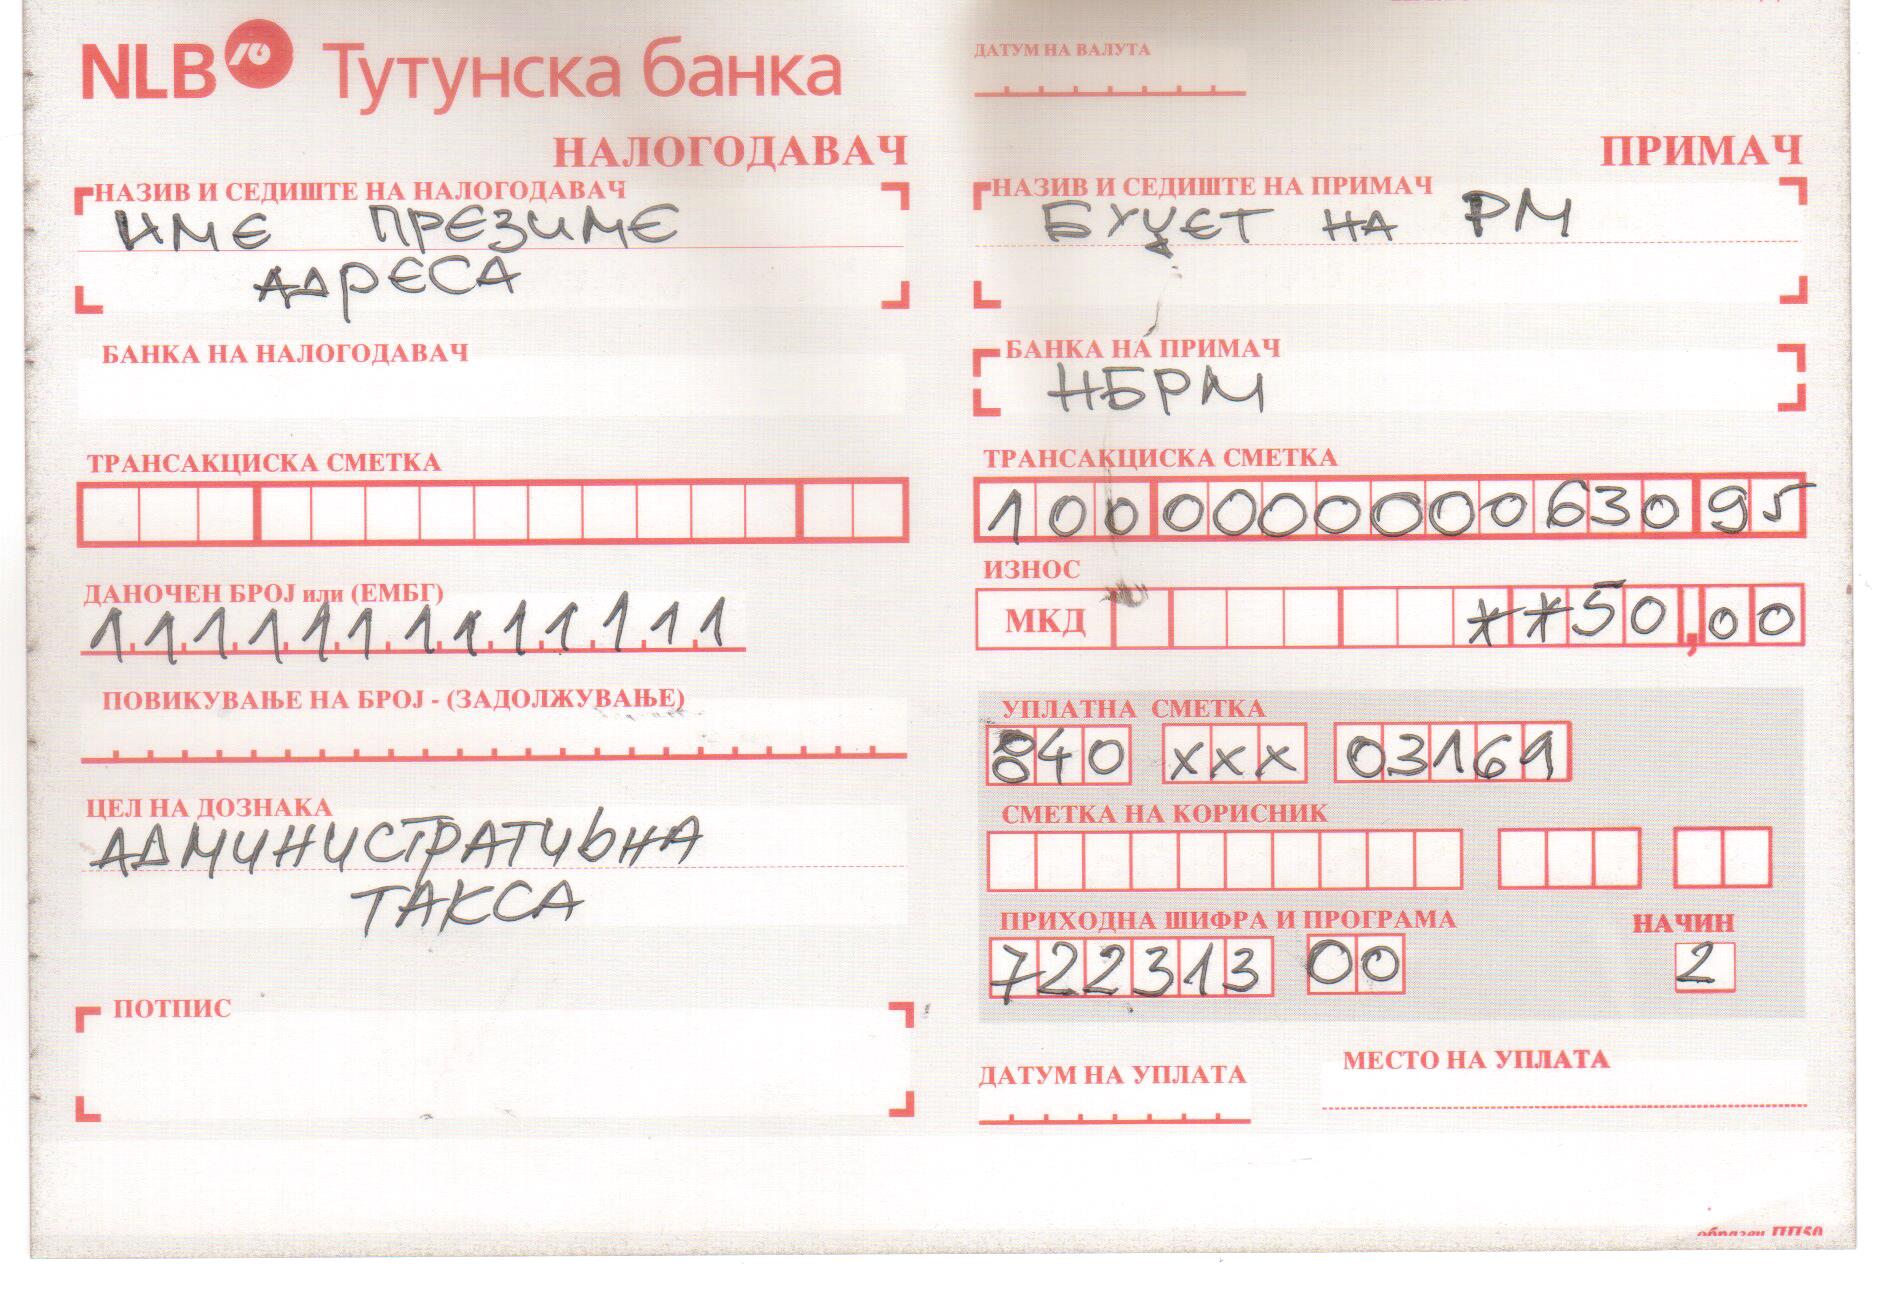 NLB Тутунска банка
НАЛОГОДАВАЧ
НАЗИВ И СЕДИШТЕ НА НАЛОГОДАВАЧ
ИМЕ ПРЕЗИМЕ
АДРЕСА
БАНКА НА НАЛОГОДАВАЧ
ТРАНСАКЦИСКА СМЕТКА
ДАНОЧЕН БРОЈ или (ЕМБГ)
1111111111111
ПОВИКУВАЊЕ НА БРОЈ - (ЗАДОЛЖУВАЊЕ)
ЦЕЛ НА ДОЗНАКА
АДМИНИСТРАТИВНА
ТАКСА
ПОТПИС
ДАТУМ НА ВАЛУТА
ПРИМАЧ
НАЗИВ И СЕДИШТЕ НА ПРИМАЧ
БУЏЕТ НА РМ
БАНКА НА ПРИМАЧ
НБРМ
ТРАНСАКЦИСКА СМЕТКА
100 0000000630 95
ИЗНОС
МКД **50,00
УПЛАТНА СМЕТКА
840 xxx 03161
СМЕТКА НА КОРИСНИК
ПРИХОДНА ШИФРА И ПРОГРАМА НАЧИН
722313 00 2
ДАТУМ НА УПЛАТА МЕСТО НА УПЛАТА
образец ПП50